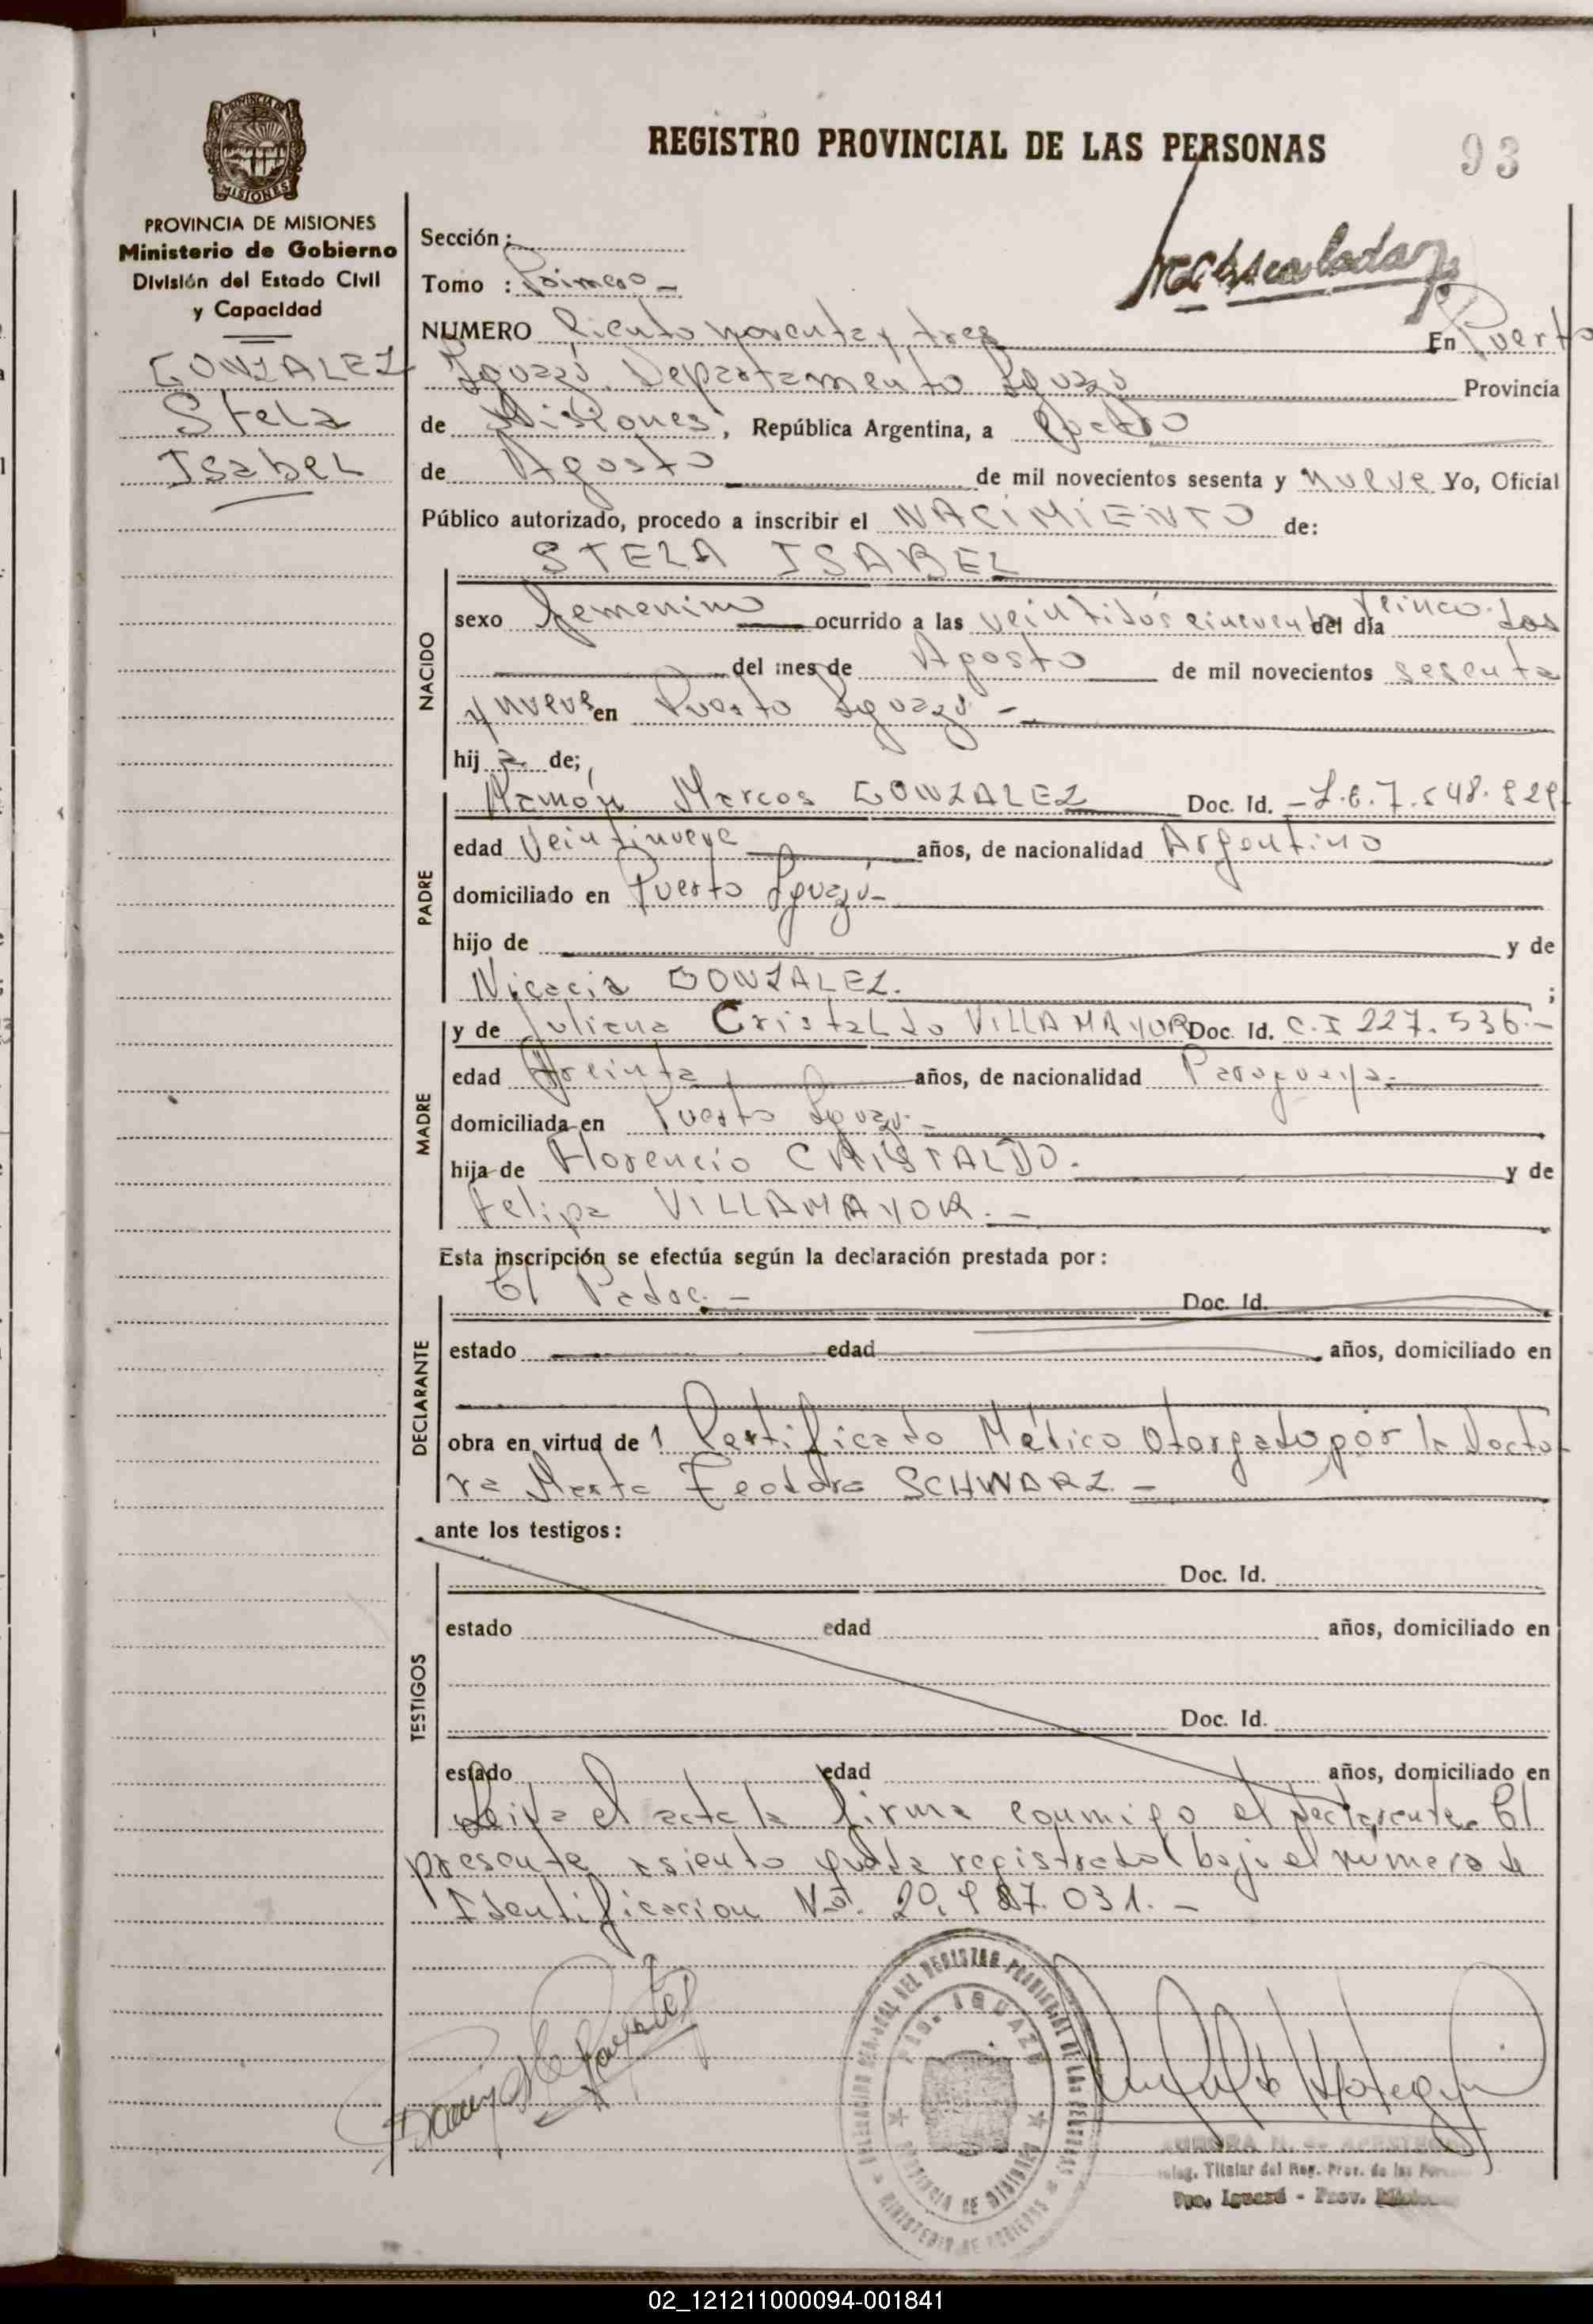 REGISTRO PROVINCIAL DE LAS PERSONAS
93
PROVINCIA DE MISIONES
PROVINCIA DE MISIONES
Ministerio de Gobierno
División del Estado Civil
y Capacidad
GONZALEZ
Stela
Isabel
Sección:
Tomo : Primero -
NUMERO Ciento noventa y tres En Puerto
Iguazú, Departamento Iguazú Provincia
de Misiones, República Argentina, a Cuatro
de Agosto de mil novecientos sesenta y nueve Yo, Oficial
Público autorizado, procedo a inscribir el NACIMIENTO de:
STELA ISABEL
NACIDO
sexo Femenino ocurrido a las veintidós cincuenta cinco del día dos
del mes de Agosto de mil novecientos sesenta
y nueve en Puerto Iguazú -
hij a de;
PADRE
Ramón Marcos GONZALEZ Doc. Id. - L.E. 7.548.829
edad Veintinueve años, de nacionalidad Argentino
domiciliado en Puerto Iguazú -
hijo de y de
Nicacia GONZALEZ. ;
MADRE
y de Juliana Cristaldo VILLAMAYOR Doc. Id. C.I 227.536.-
edad Treinta años, de nacionalidad Paraguaya.
domiciliada en Puerto Iguazú. -
hija de Florencio CRISTALDO. y de
Felipa VILLAMAYOR. -
Esta inscripción se efectúa según la declaración prestada por:
DECLARANTE
El Padre. - Doc. Id.
estado edad años, domiciliado en
obra en virtud de 1 Certificado Médico Otorgado por la Docto
ra Marta Teodora SCHWARZ. -
ante los testigos:
TESTIGOS
Doc. Id.
estado edad años, domiciliado en
Doc. Id.
estado edad años, domiciliado en
Leida el acta la firma conmigo el declarante. El
presente asiento queda registrado bajo el numero de
Identificacion Nº. 20.987.031. -
DELEGACION SECCIONAL DEL REGISTRO PROVINCIAL DE LAS PERSONAS
PTO. IGUAZU
PROVINCIA DE MISIONES
MINISTERIO DE GOBIERNO
Titular del Reg. Prov. de las
Pto. Iguazú - Prov.
02_121211000094-001841